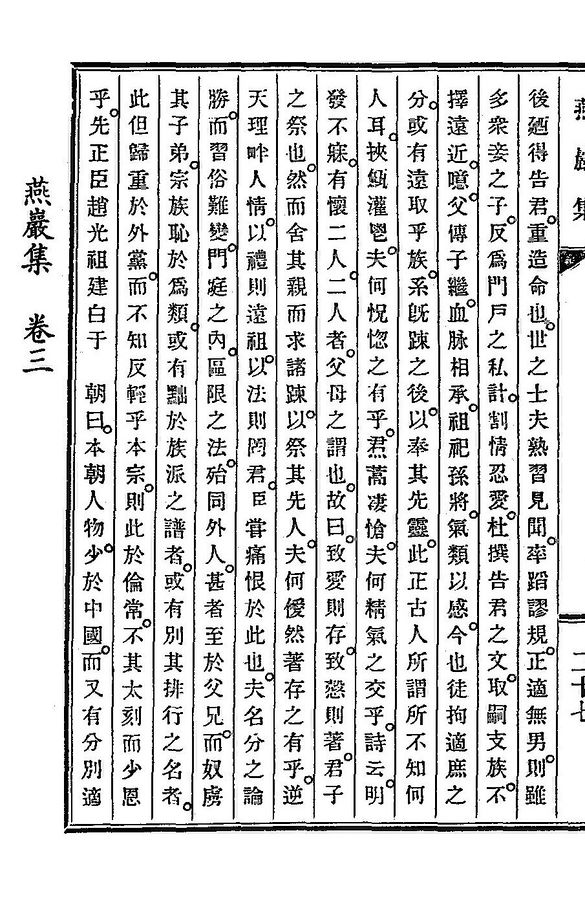 燕巖集
二十七
後廼得告君。重造命也。世之士夫熟習見聞。率蹈謬規。正適無男。則雖
多衆妾之子。反爲門戶之私計。割情忍愛。杜撰告君之文。取嗣支族。不
擇遠近。噫。父傳子繼。血脉相承。祖祀孫將。氣類以感。今也徒拘適庶之
分。或有遠取乎族。系旣踈之後。以奉其先靈。此正古人所謂所不知何
人耳。挾瓻灌鬯。夫何怳惚之有乎。焄蒿凄愴。夫何精氣之交乎。詩云。明
發不寐。有懷二人。二人者。父母之謂也。故曰。致愛則存。致慤則著。君子
之祭也。然而舍其親而求諸踈。以祭其先人。夫何僾然著存之有乎。逆
天理畔人情。以禮則遠祖。以法則罔君。臣甞痛恨於此也。夫名分之論
勝。而習俗難變。門庭之內。區限之法。殆同外人。甚者至於父兄。而奴虜
其子弟。宗族恥於爲類。或有黜於族派之譜者。或有別其排行之名者。
此但歸重於外黨。而不知反輕乎本宗。則此於倫常。不其太刻而少恩
乎。先正臣趙光祖建白于　朝曰。本朝人物。少於中國。而又有分別適
燕巖集　卷三